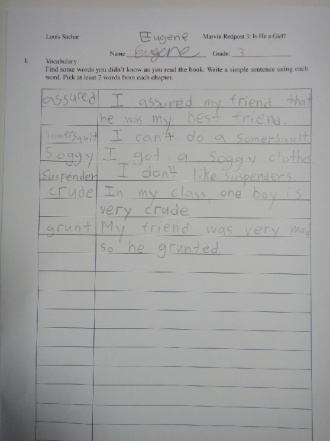 Louis Sachar Eugene Marvin Redpost 3: Is He a Girl?
Name Eugene Grade: 3
I. Vocabulary
Find some words you didn't know as you read the book. Write a simple sentence using each
word. Pick at least 2 words from each chapter.
assured I assured my friend that
he was my best friend.
I can't do a somersault.
Soggy I got a soggy clothe
Suspender I don't like suspenders
crude In my class one boy is
very crude
grunt My friend was very mad
so he grunted